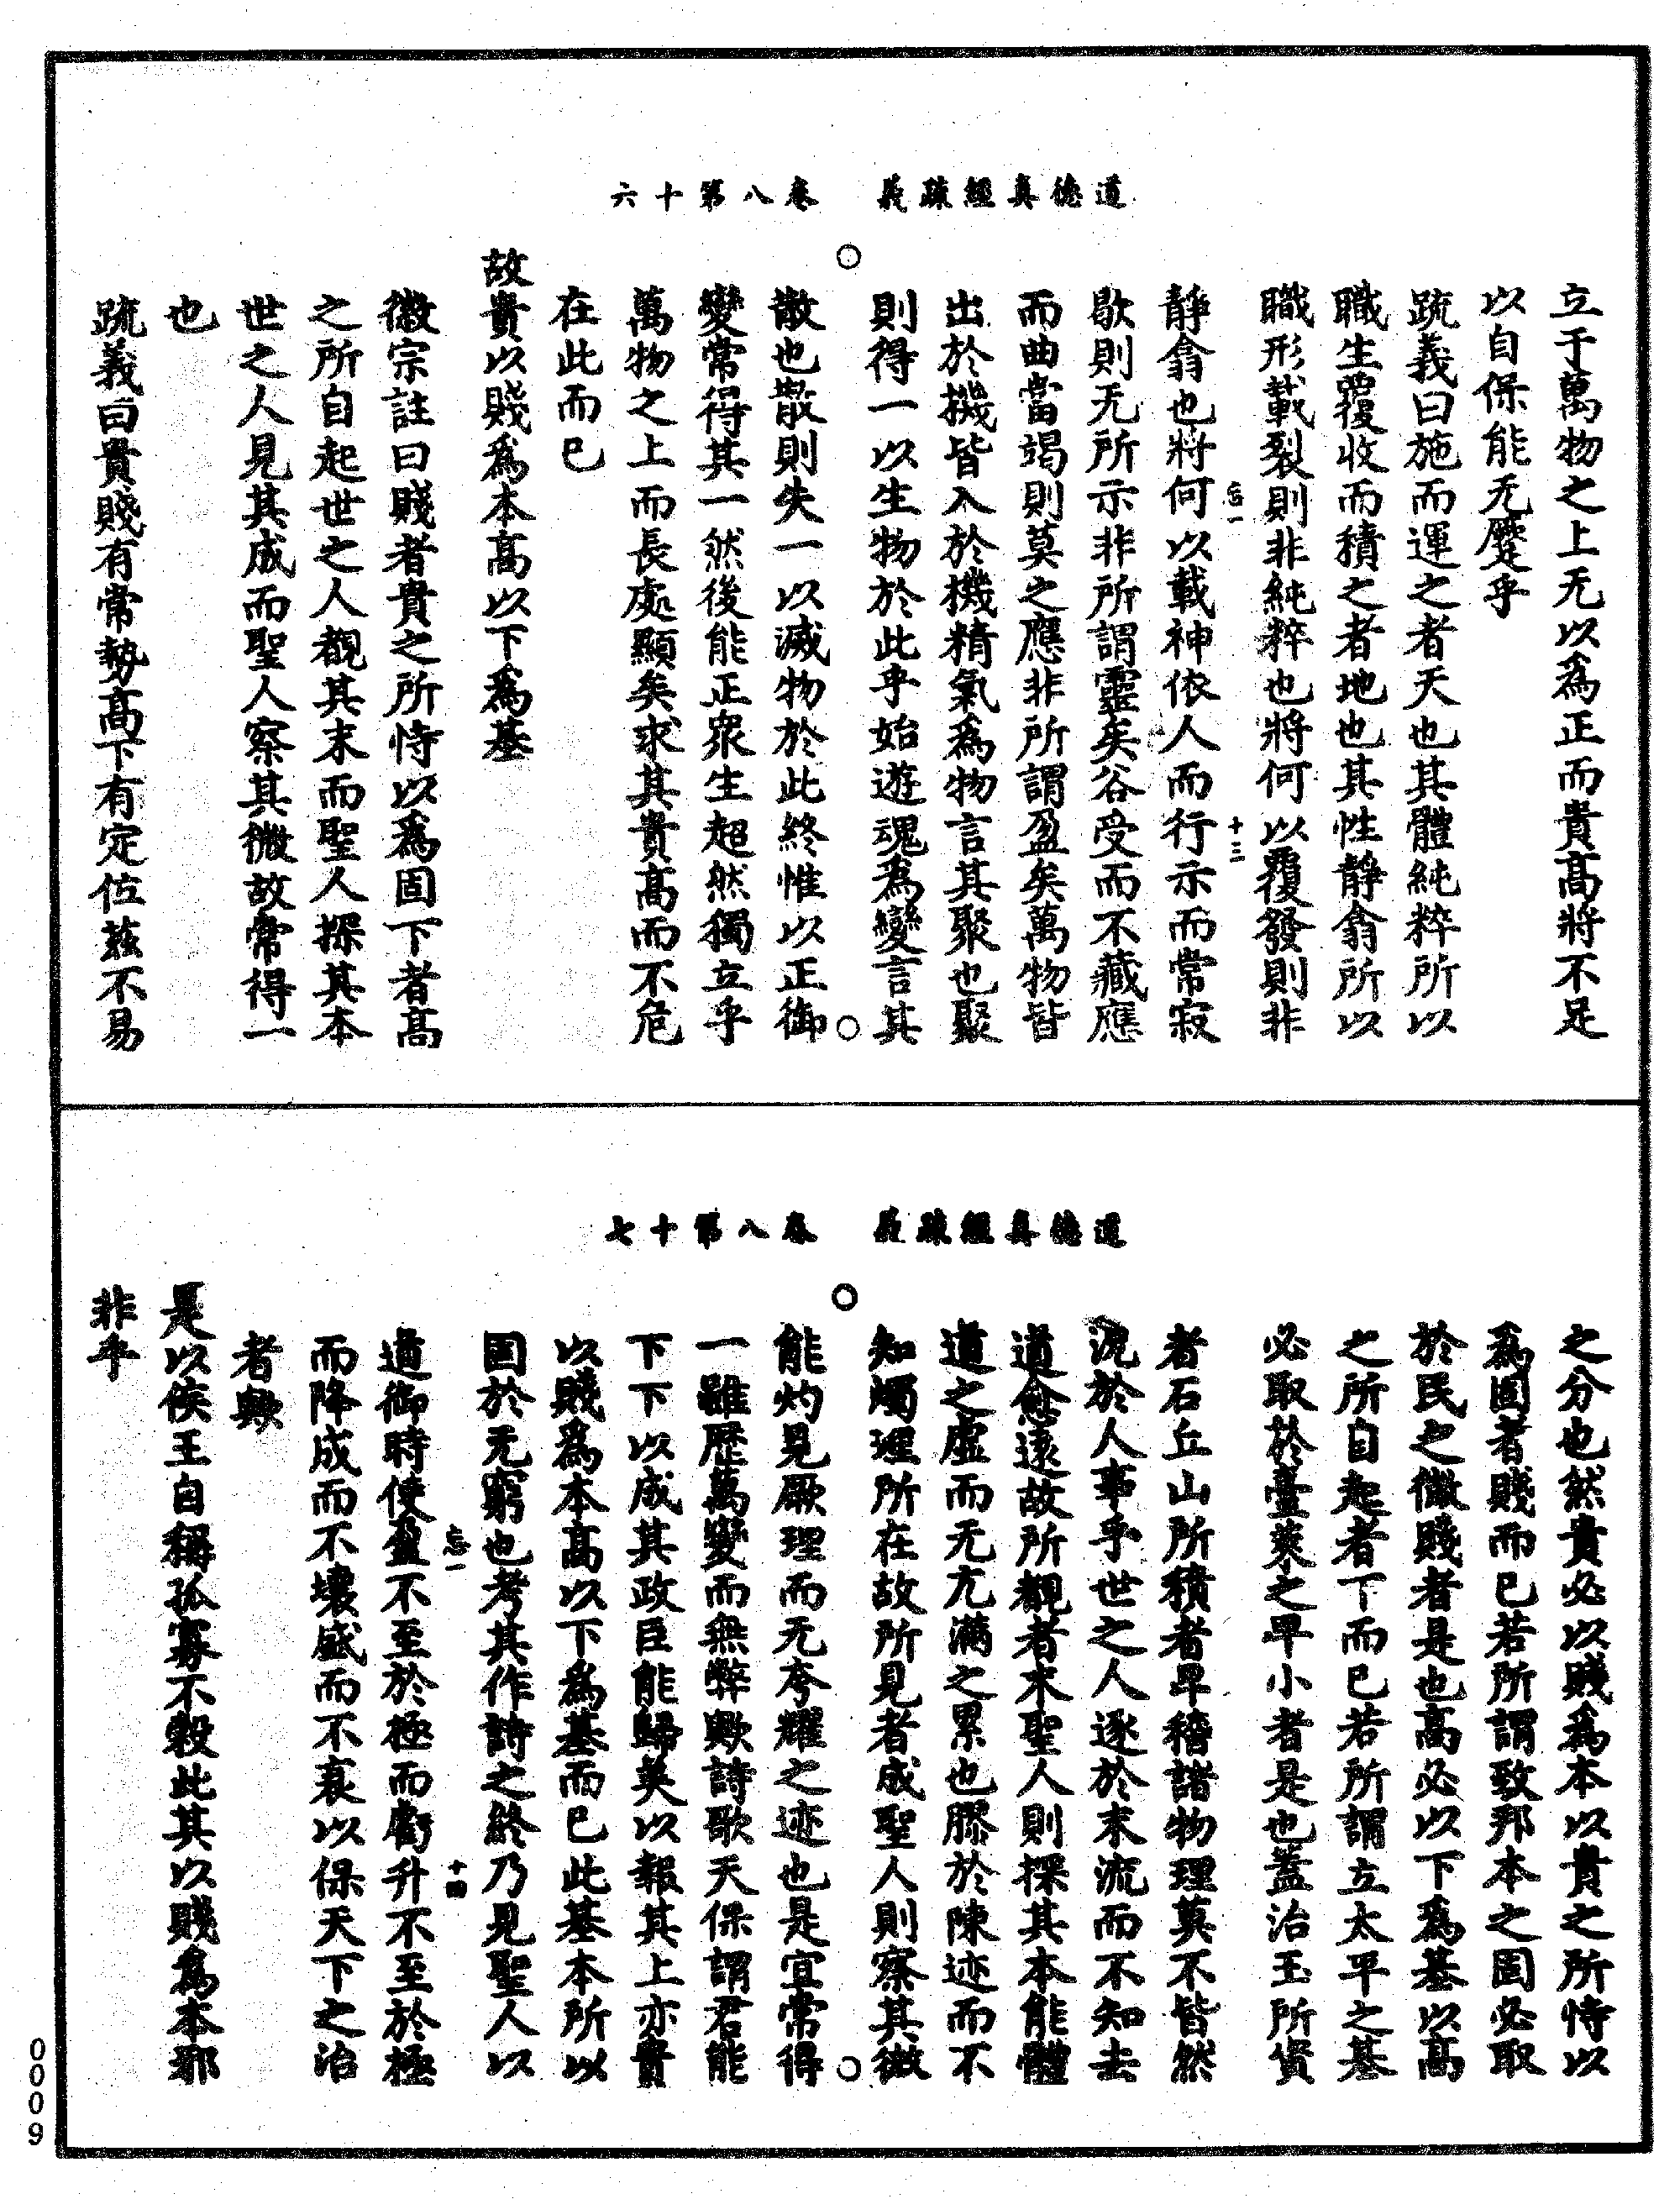 道德真經疏義　卷八第十六
立于萬物之上无以爲正而貴高將不足
以自保能无蹷乎
疏義曰施而運之者天也其體純粹所以
職生覆收而積之者地也其性靜翕所以
職形載裂則非純粹也將何以覆發則非
忘一　十三
靜翕也將何以載神依人而行示而常寂
歇則无所示非所謂靈矣谷受而不藏應
而曲當竭則莫之應非所謂盈矣萬物皆
出於機皆入於機精氣爲物言其聚也聚
則得一以生物於此乎始遊魂爲變言其
散也散則失一以滅物於此終惟以正御
變常得其一然後能正衆生超然獨立乎
萬物之上而長處顯矣求其貴高而不危
在此而已
故貴以賤爲本高以下爲基
徽宗註曰賤者貴之所恃以爲固下者高
之所自起世之人觀其末而聖人探其本
世之人見其成而聖人察其微故常得一
也
疏義曰貴賤有常勢高下有定位茲不易
道德真經疏義　卷八第十七
之分也然貴必以賤爲本以貴之所恃以
爲固者賤而已若所謂致邦本之固必取
於民之微賤者是也高必以下爲基以高
之所自起者下而已若所謂立太平之基
必取於臺萊之卑小者是也蓋治玉所資
者石丘山所積者卑稽諸物理莫不皆然
況於人事乎世之人逐於末流而不知去
道愈遠故所觀者末聖人則探其本能體
道之虛而无亢滿之累也膠於陳迹而不
知燭理所在故所見者成聖人則察其微
能灼見厥理而无夸耀之迹也是宜常得
一雖歷萬變而無弊歟詩歌天保謂君能
下下以成其政臣能歸美以報其上亦貴
以賤爲本高以下爲基而已此基本所以
固於无窮也考其作詩之終乃見聖人以
忘一　十四
道御時使盈不至於極而虧升不至於極
而降成而不壞盛而不衰以保天下之治
者歟
是以侯王自稱孤寡不穀此其以賤爲本邪
非乎
0009